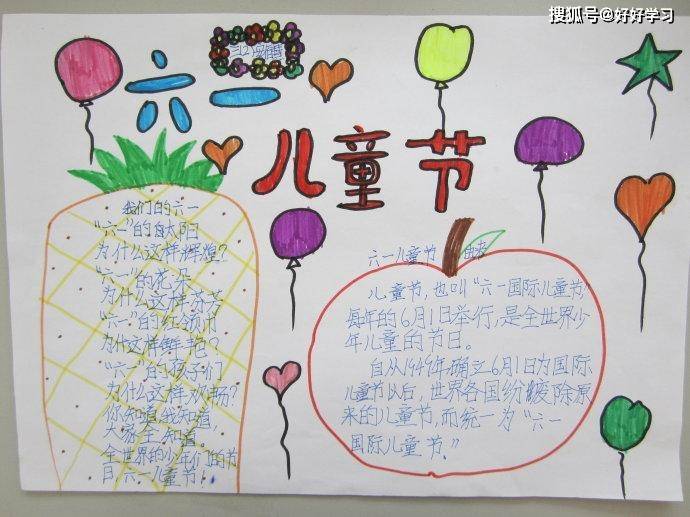 搜狐号@好好学习
六一
儿童节
我们的六一
"六一"的太阳
为什么这样辉煌?
"六一"的花朵
为什么这样芬芳
"六一"的红领巾
为什这样鲜艳?
"六一"的孩子们
为什么这样欢畅?
你知道,我知道,
大家全知道。
全世界的少年们的节
日,六一儿童节!
六一儿童节 由来
儿童节,也叫"六一国际儿童节,
每年的6月1日举行,是全世界少
年儿童的节日。
自从1949年确立6月1日为国际
儿童节以后,世界各国纷纷废除原
来的儿童节,而统一为"六一
国际儿童节."